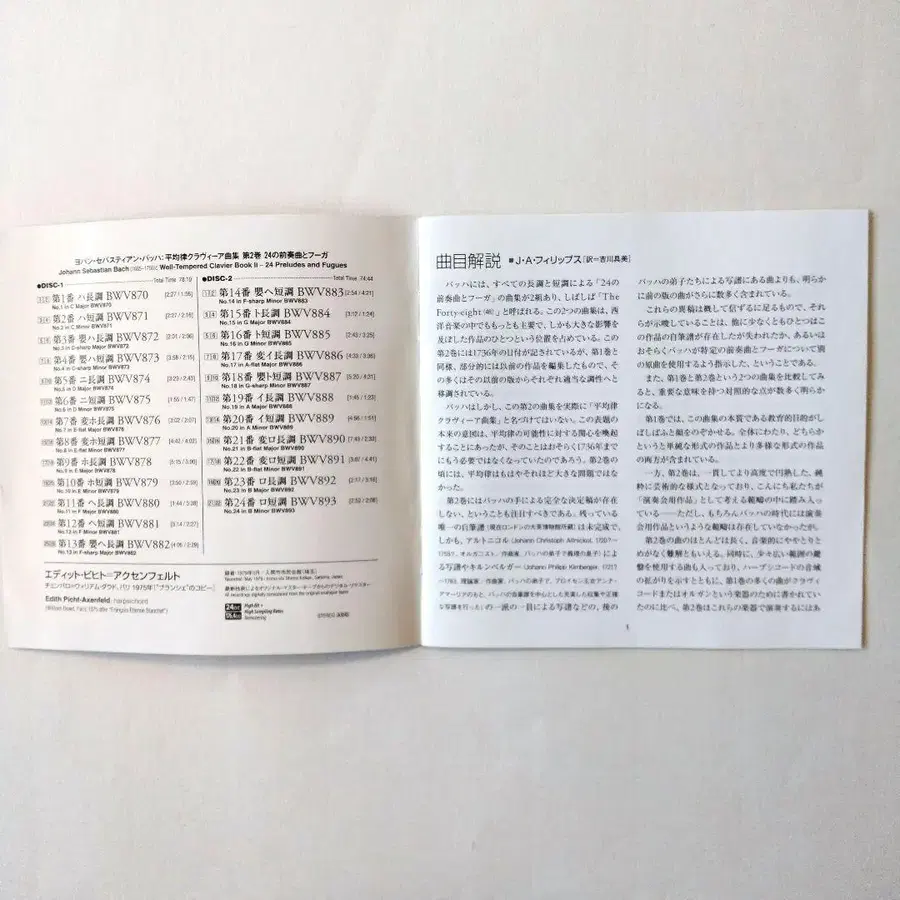 ヨハン・セバスティアン・バッハ:平均律クラヴィーア曲集 第2巻 24の前奏曲とフーガ
Johann Sebastian Bach (1685-1750): Well-Tempered Clavier Book II – 24 Preludes and Fugues
●DISC-1 Total Time 78:10
第1番 ハ長調 BWV870 [2:27/1:55]
No.1 in C Major BWV870
第2番 ハ短調 BWV871
No.2 in C Minor BWV871
第3番 嬰ハ長調 BWV872
No.3 in C-sharp Major BWV872
第4番 嬰ハ短調 BWV873
No.4 in C-sharp Minor BWV873
第5番 ニ長調 BWV874
No.5 in D Major BWV874
第6番 ニ短調 BWV875
No.6 in D Minor BWV875
第7番 変ホ長調 BWV876
No.7 in E-flat Major BWV876
第8番 変ホ短調 BWV877
第9番 ホ長調 BWV878
No.9 in E Major BWV878
第10番 ホ短調 BWV879
No.10 in E Minor BWV879
第11番 ヘ長調 BWV880
No.11 in F Major BWV880
第12番 ヘ短調 BWV881
No.12 in F Minor BWV881
第13番 嬰ヘ長調 BWV882
No.13 in F-sharp Major BWV882
●DISC-2 Total Time 74:44
第14番 嬰ヘ短調 BWV883 [2:54/4:21]
No.14 in F-sharp Minor BWV883
第15番 ト長調 BWV884 [3:12/1:24]
No.15 in G Major BWV884
第16番 ト短調 BWV885 [2:43/3:25]
No.16 in G Minor BWV885
第17番 変イ長調 BWV886
No.17 in A-flat Major BWV886
第18番 嬰ト短調 BWV887
No.18 in G-sharp Minor BWV887
第19番 イ長調 BWV888
No.19 in A Major BWV888
第20番 イ短調 BWV889
No.20 in A Minor BWV889
第21番 変ロ長調 BWV890
No.21 in B-flat Major BWV890
第22番 変ロ短調 BWV891
No.22 in B-flat Minor BWV891
第23番 ロ長調 BWV892
No.23 in B Major BWV892
第24番 ロ短調 BWV893
No.24 in B Minor BWV893
エディット・ピヒト=アクセンフェルト
チェンバロ=ウィリアム・ダウド、パリ 1975年["ブランシェ"のコピー]
Edith Picht-Axenfeld : harpsichord
24bit
High Bit +
High Sampling Rates
Remastering
STEREO
曲目解説 ■J・A・フィリップス[訳=吉川真美]
バッハには、すべての長調と短調による「24の
前奏曲とフーガ」の曲集が2組あり、しばしば「The
Forty-eight(48)」と呼ばれる。この2つの曲集は、西
洋音楽の中でももっとも主要で、しかも大きな影響を
及ぼした作品のひとつという位置を占めている。この
第2巻には1736年の日付が記されているが、第1巻と
同様、部分的には以前の作品を編集したもので、そ
の多くはその以前の版からそれぞれ適当な調性へと
移調されている。
バッハはしかし、この第2の曲集を実際に「平均律
クラヴィーア曲集」と名づけてはいない。この表題の
本来の意図は、平均律の可能性に対する関心を喚起
することにあったが、そのことはおそらく1736年まで
にもう必要ではなくなっていたのであろう。第2巻の
頃には、平均律はもはやそれほど大きな問題ではな
かった。
第2巻にはバッハの手による完全な決定稿が存在
しない、ということも注目すべきである。残っている
唯一の自筆譜[現在ロンドンの大英博物館所蔵]は未完成で、
しかも、アルトニコル(Johann Christoph Altnickol,
オルガニスト、作曲家、バッハの弟子で義理の息子)によ
る写譜やキルンベルガー(Johann Philipp Kirnberger, 1721
〜1783, 理論家、作曲家、バッハの弟子で、プロイセン王女アンナ・
アマーリアのもと、バッハの自筆譜を中心とした充実した収集や正確
な写譜を行った)の一派の一員による写譜などの、後の
バッハの弟子たちによる写譜にある曲よりも、明らか
に前の版の曲がさらに数多く含まれている。
これらの異稿は概して信ずるに足るもので、それ
らが示唆していることは、他に少なくともひとつはこ
の作品の自筆譜が存在したが失われたか、あるいは
おそらくバッハが特定の前奏曲とフーガについて別
の原曲を使用するよう指示した、ということである。
また、第1巻と第2巻という2つの曲集を比較してみ
ると、重要な意味を持つ対照的な点が数多く明らか
になる。
第1巻では、この曲集の本質である教育的目的がし
ばしばふと顔をのぞかせる。全体にわたり、どちらか
というと単純な形式の作品より多様な形式の作品
の両方が含まれている。
一方、第2巻は、一貫してより高度で円熟した、純
粋に芸術的な様式となっており、こんにち私たちが
「演奏会用作品」として考える範疇の中に踏み入っ
ている──ただし、もちろんバッハの時代には演奏
会用作品というような範疇は存在していなかったが。
第2巻の曲のほとんどは長く、音楽的にややとりと
めがなく難解ともいえる。同時に、少々広い範囲の鍵
盤を使用する曲も入っており、ハープシコードの音域
の拡がりを示すとともに、第1巻の多くの曲がクラヴィ
コードまたはオルガンという楽器のために書かれてい
たのに比べ、第2巻はこれらの楽器で演奏するにはあ
1